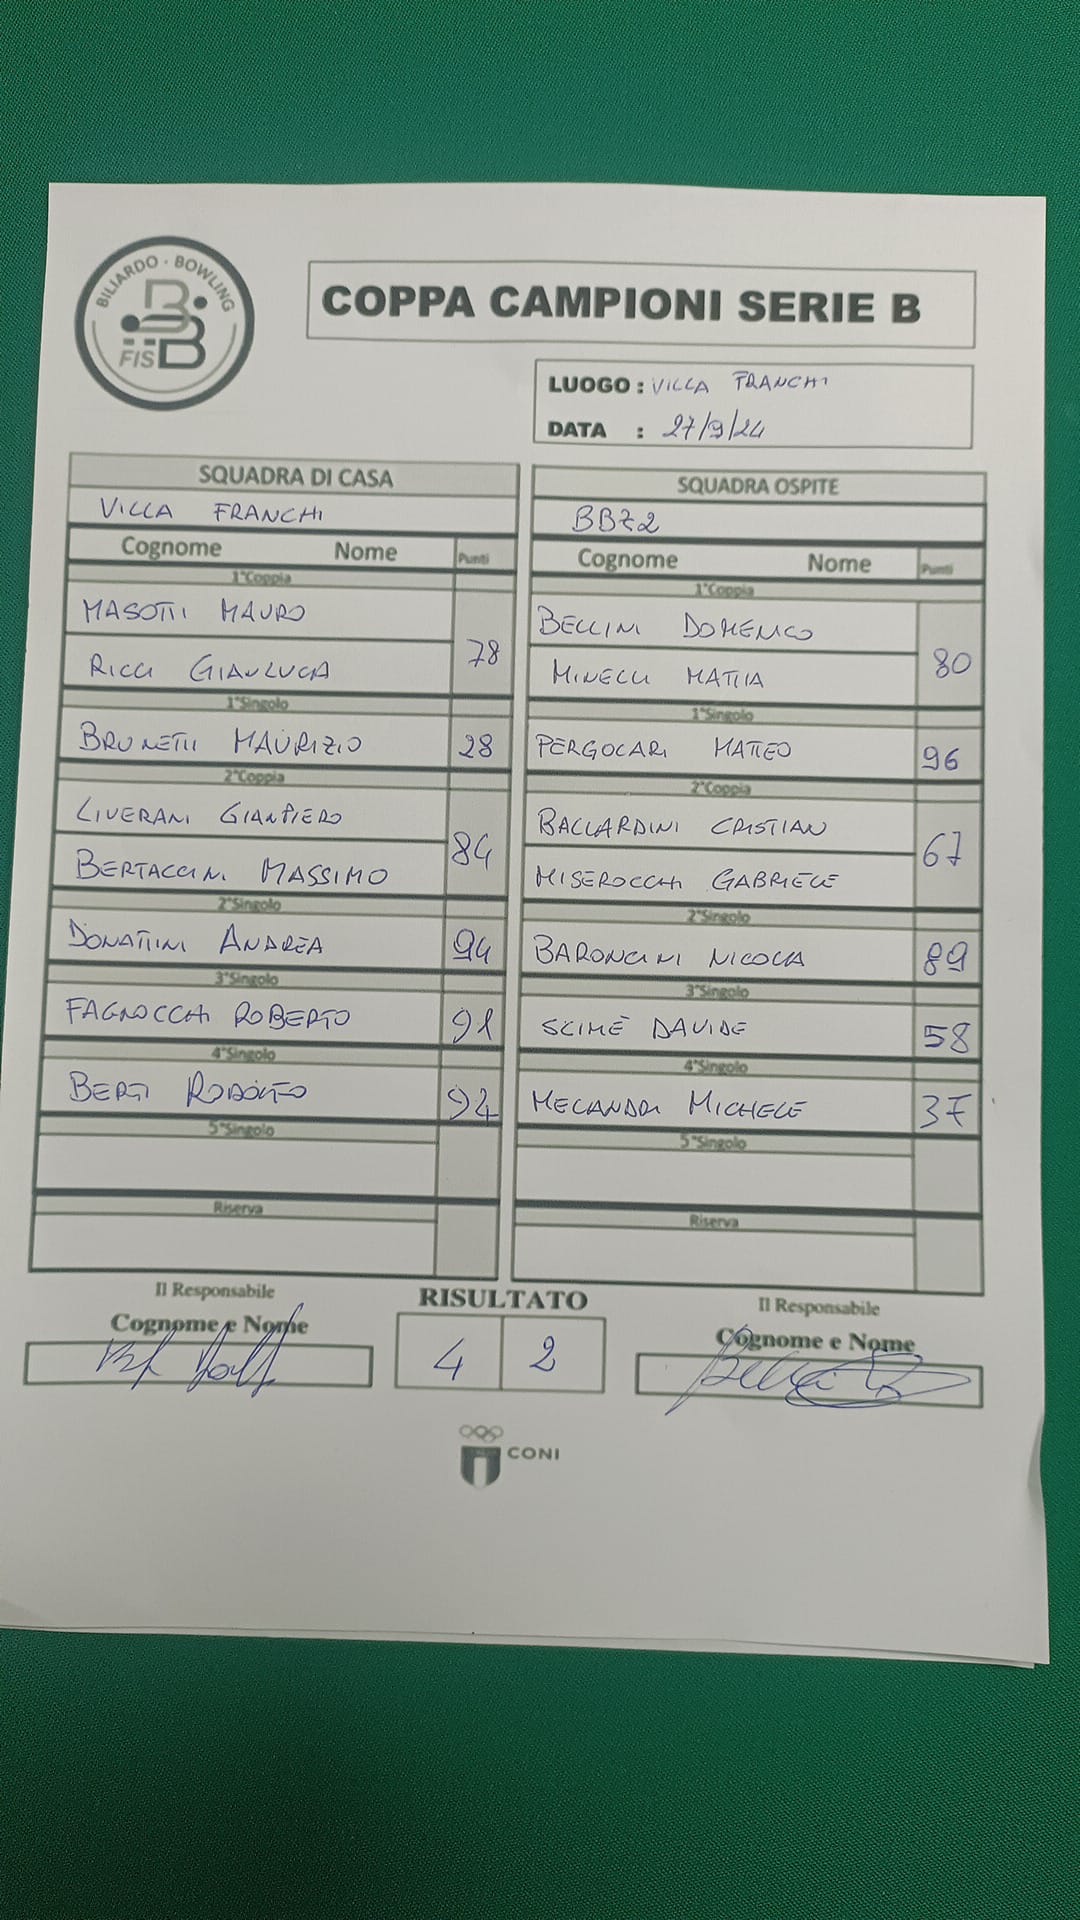 BILIARDO · BOWLING
FISBB
COPPA CAMPIONI SERIE B
LUOGO : VILLA FRANCHI
DATA : 27/9/24
SQUADRA DI CASA
VILLA FRANCHI
Cognome Nome Punti
1°Coppia
MASOTTI MAURO
RICCI GIANLUCA
78
1°Singolo
BRUNETTI MAURIZIO 28
2°Coppia
LIVERANI GIANPIERO
BERTACCINI MASSIMO
84
2°Singolo
DONATTINI ANDREA 94
3°Singolo
FAGNOCCHI ROBERTO 91
4°Singolo
BERTI RODOLFO 92
5°Singolo
Riserva
SQUADRA OSPITE
BBZ2
Cognome Nome Punti
1°Coppia
BELLINI DOMENICO
MINELLI MATTIA
80
1°Singolo
PERGOLARI MATTEO 96
2°Coppia
BALLARDINI CRISTIAN
MISEROCCHI GABRIELE
67
2°Singolo
BARONCINI NICOLA 89
3°Singolo
SCIMÈ DAVIDE 58
4°Singolo
MELANDRI MICHELE 37
5°Singolo
Riserva
Il Responsabile
Cognome e Nome
RISULTATO
4 2
Il Responsabile
Cognome e Nome
CONI